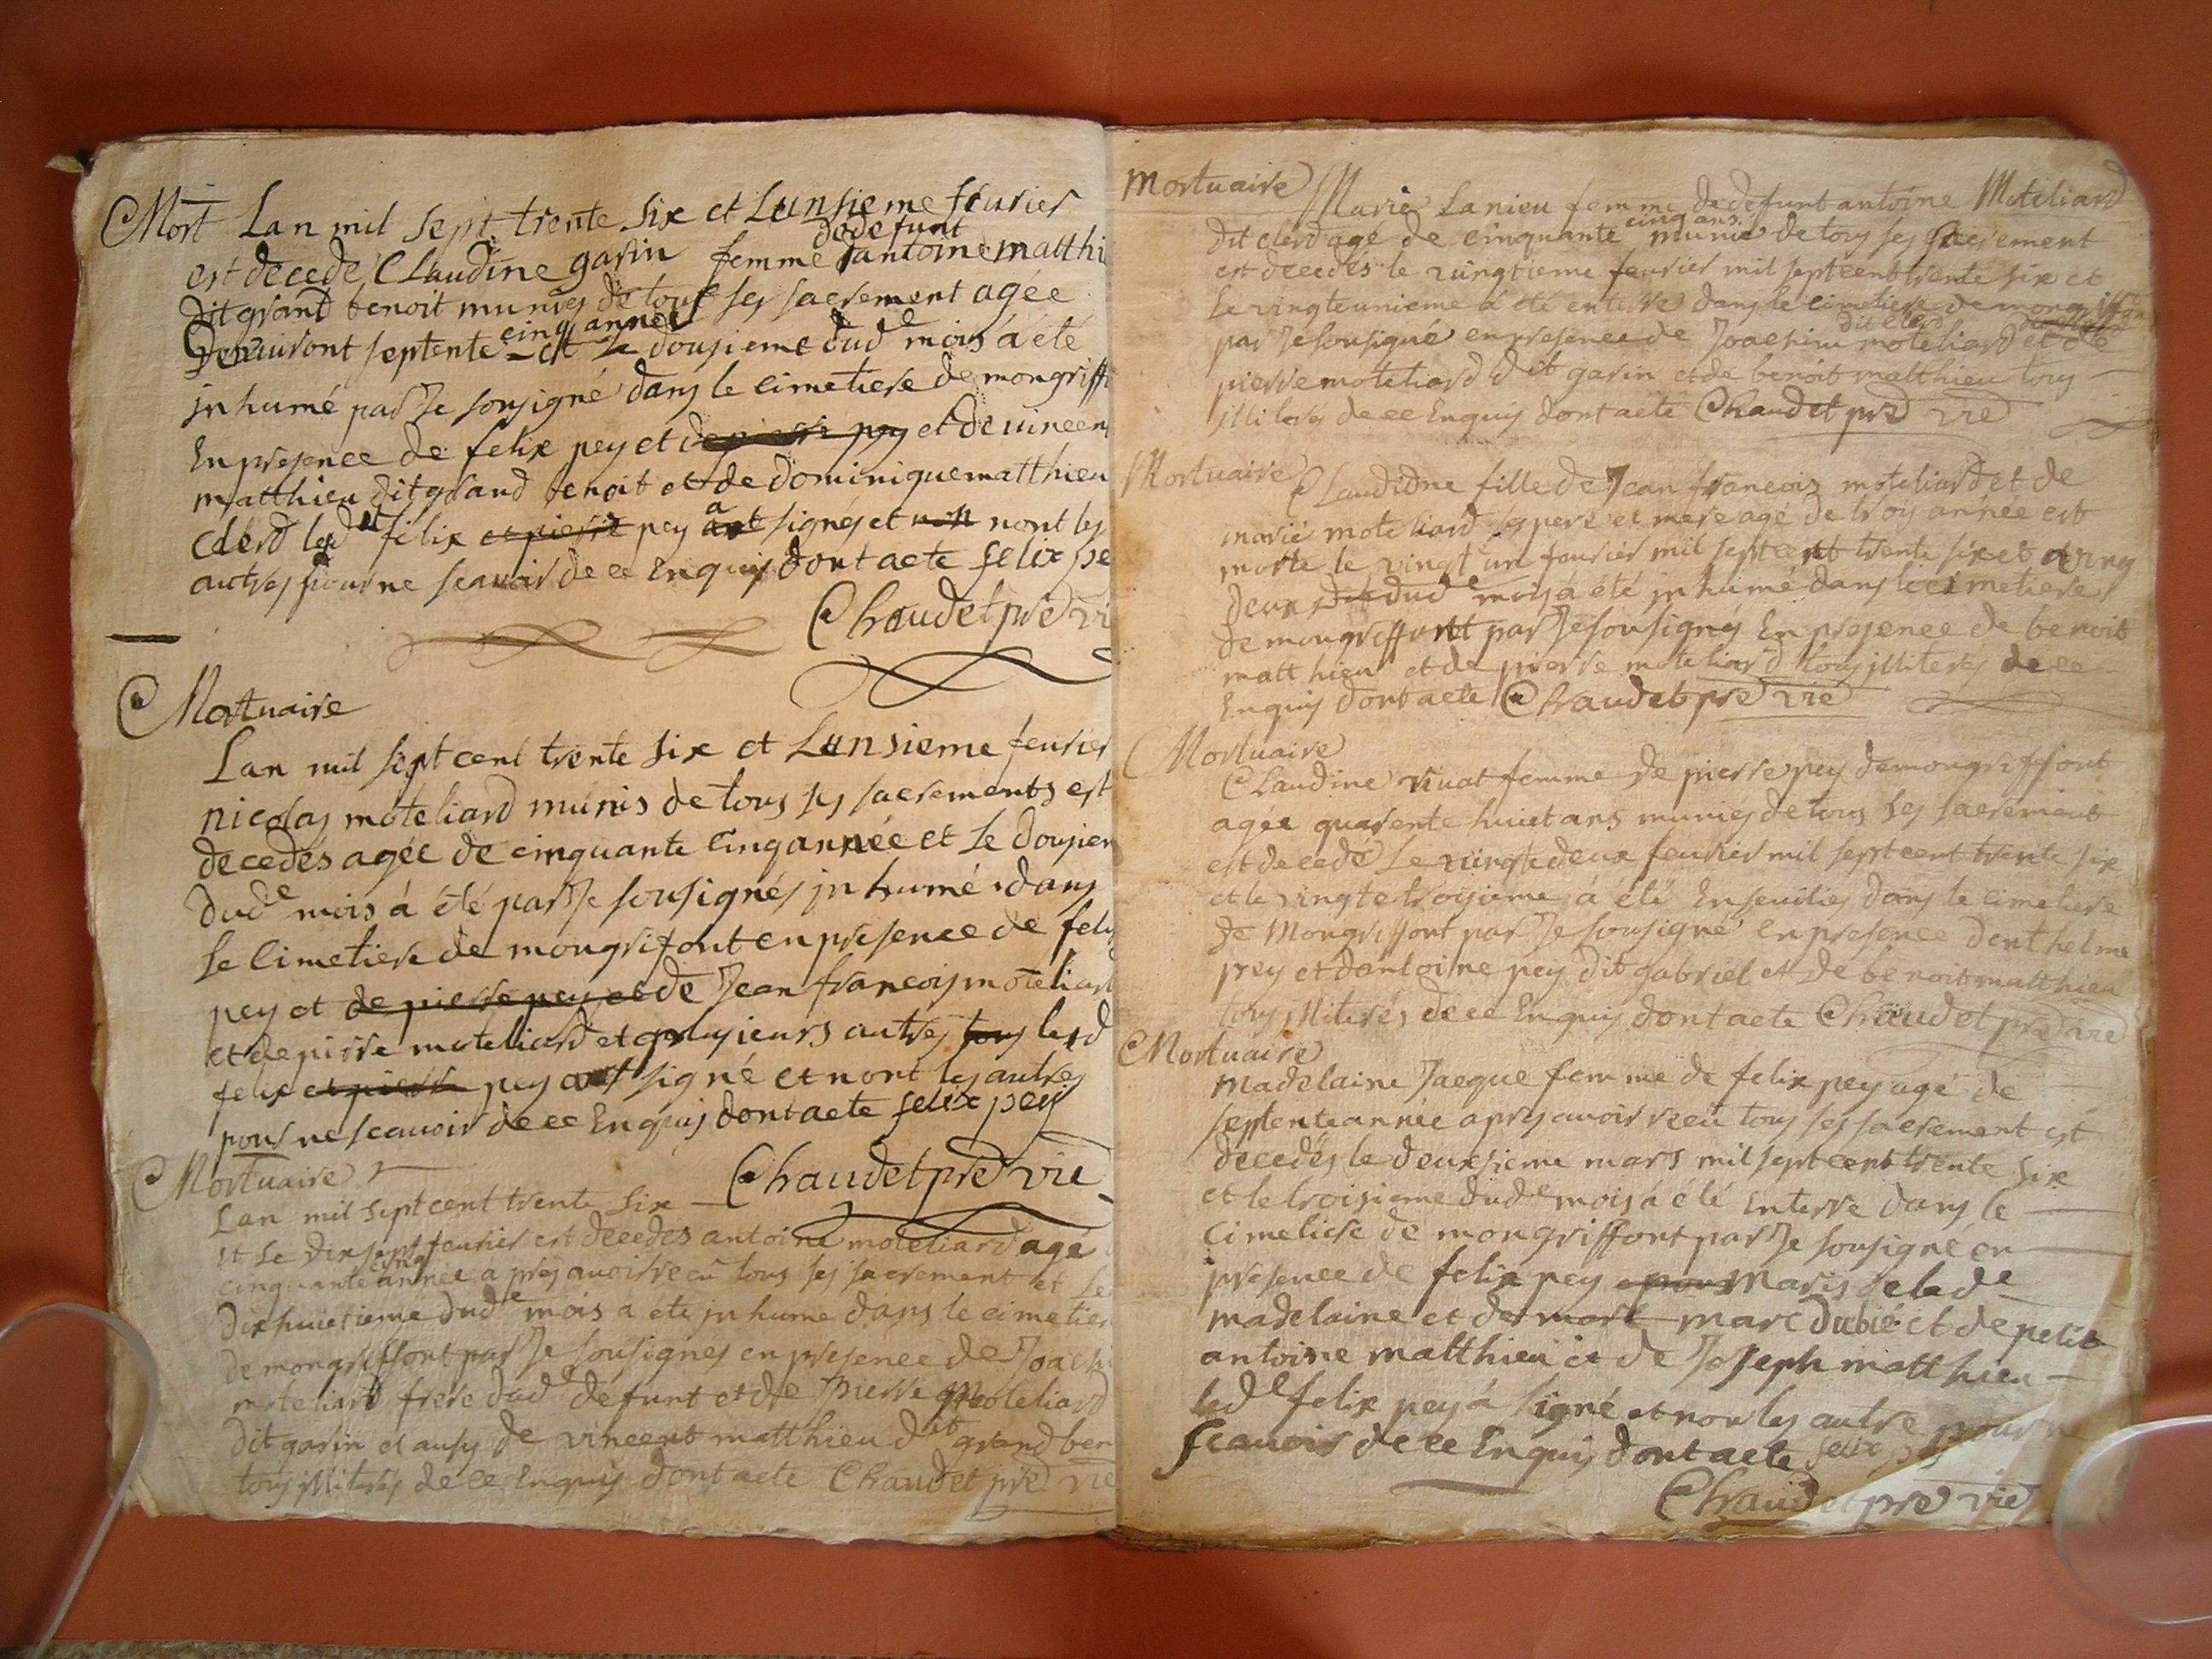 Mort Lan mil sept trente six et Lunsieme feurier
est decedé Claudine garin femme dedefunt dantoine matthi
dit grand benoit munies de tous ses sacrement agée
denuiront septente cinq année et Le dousieme dude mois a été
jnhumé par Je sousigné dans le cimetiere de mongriff
En presence de felix pey et de pierre pey et de uincen
matthieu dit grand benoit et de dominique matthieu
clérd led felix et pierre pey a signés et non nont les
autres pour ne scauoir de ce Enquis dont acte felix pe
Chaudet pre vi
Mortuaire
Lan mil sept cent trente six et Lunsieme feurier
nicolas moteliard munis de tous ses sacrements est
decedés agée de cinquante cinq année et Le dousiem
dude mois á été par Je sousignés jnhumé dans
Le Cimetiere de mongrifont en presence de felix
pey et de pierre pey et de Jean francois moteliard
et de pierre moteliard et plusieurs autres tous led
felix et pierre pey a signé et nont les autres
pour ne scauoir de ce Enquis dont acte felix pey
Chaudet pre vie
Mortuaire
Lan mil sept cent trente six
et Le dix sept feurier est decedés antoine moteliard agé
cinquante cinq année apres auoir receu tous ses sacrement et Le
dixhuictieme dude mois a été jnhume dans le cimetier
de mongriffont par Je sousignes en presence de Joachi
moteliard frere dude defunt et de pierre moteliard
dit garin et ausy de vincent matthieu dit grand ben
tous jlliterés de ce Enquis dont acte Chaudet pre vie
Mortuaire Marie Lanieu femme de defunt antoine Moteliard
dit clerd agé de cinquante cinq ans munie de tous ses sacrement
est decedés le vingtieme feurier mil sept cent trente six et
Le vingteunieme á été enterre dans le cimetiere de mongriffon
par Je sousigné en presence de Joachim moteliard dit clerd et de
pierre moteliard dit garin et de benoit matthieu tous
jlliterés de ce Enquis dont acte Chaudet pre vie
Mortuaire Claudidne fille de Jean francois moteliard et de
marie moteliard ses pere et mere agé de trois année est
morte le vingt un feurier mil sept cent trente six et aving
deux dit dude mois á été jnhumé dans le cimetiere
de mongriffont par Je sousignés En presence de benoit
matthieu et de pierre moteliard tous jlliterés de ce
Enquis dont acte Chaudet pre vie
Mortuaire
Claudine viuat femme de pierre pey demongriffont
agée quarente huict ans munies de tous ses sacrement
est decedé Le vingtedeux feurier mil sept cent trente six
et le vingtetroisieme á été Enseuilies dans le cimetiere
de Mongriffont par Je sousigné En presence denthelme
prey et dantoine pey dit gabriel et de benoit matthieu
tous jlliterés de ce Enquis dont acte Chaudet pre vie
Mortuaire
Madelaine Jacque femme de felix pey agé de
septente année apres auoir receu tous ses sacrement est
decedés le deuxsieme mars mil sept cent trente six
et le troisieme dude mois á été Enterre dans le
Cimetiere de mongriffont par Je sousigné en
presence de felix pey maris de lade
madelaine et de mark marc dubié et de petit
antoine matthieu et de Joseph matthieu
lede felix pey á signé et non les autre pour n
scauoir de ce Enquis dont acte felix pey
Chaudet pre vie